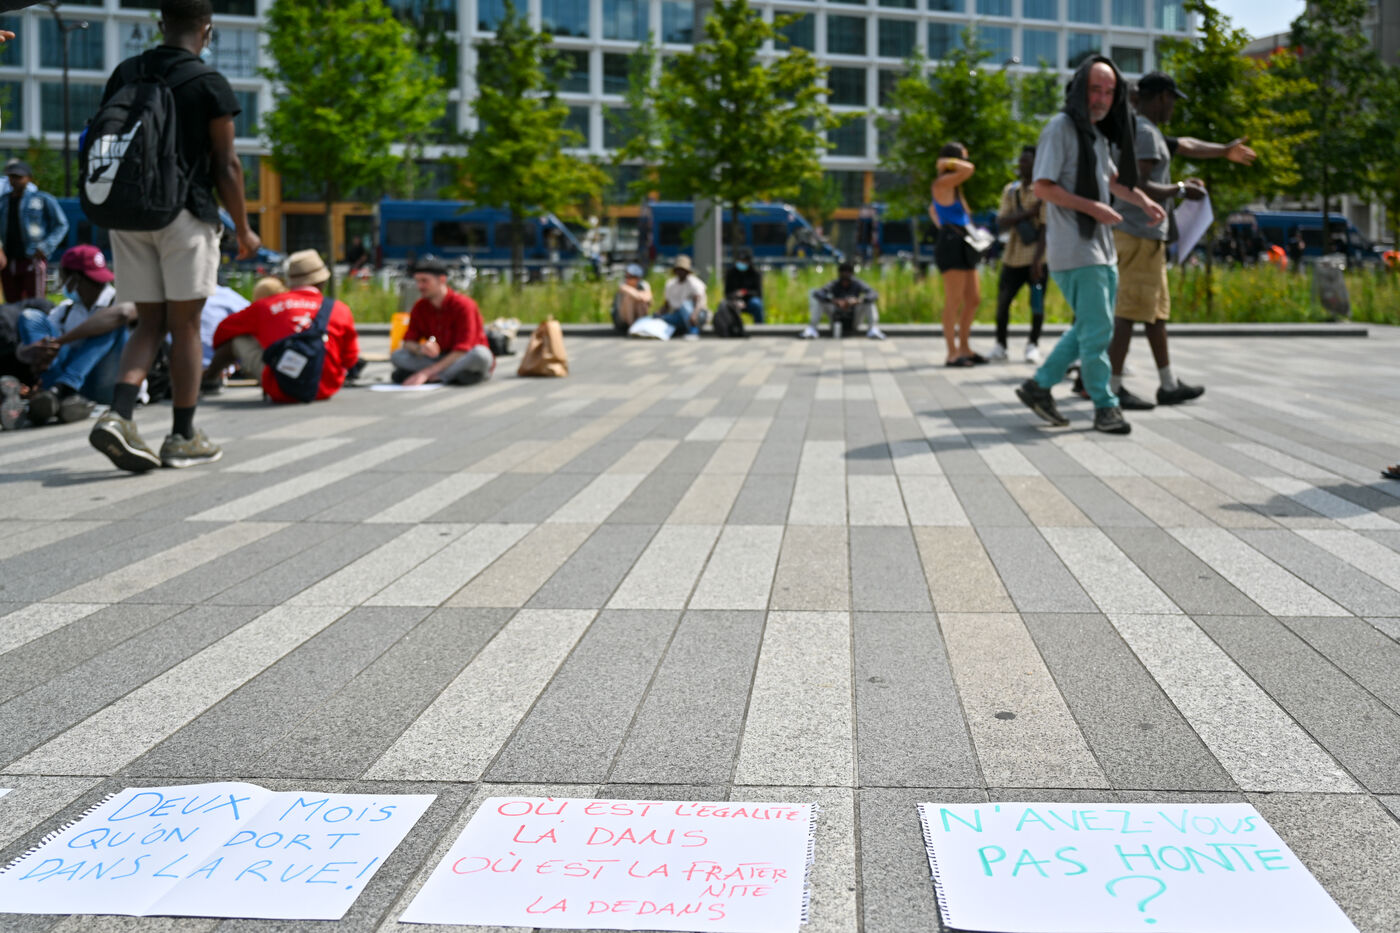 DEUX MOIS
QU'ON DORT
DANS LA RUE!
OÙ EST L'EGALITE
LA DANS
OÙ EST LA FRATER
NITE
LA DEDANS
N'AVEZ-VOUS
PAS HONTE
?